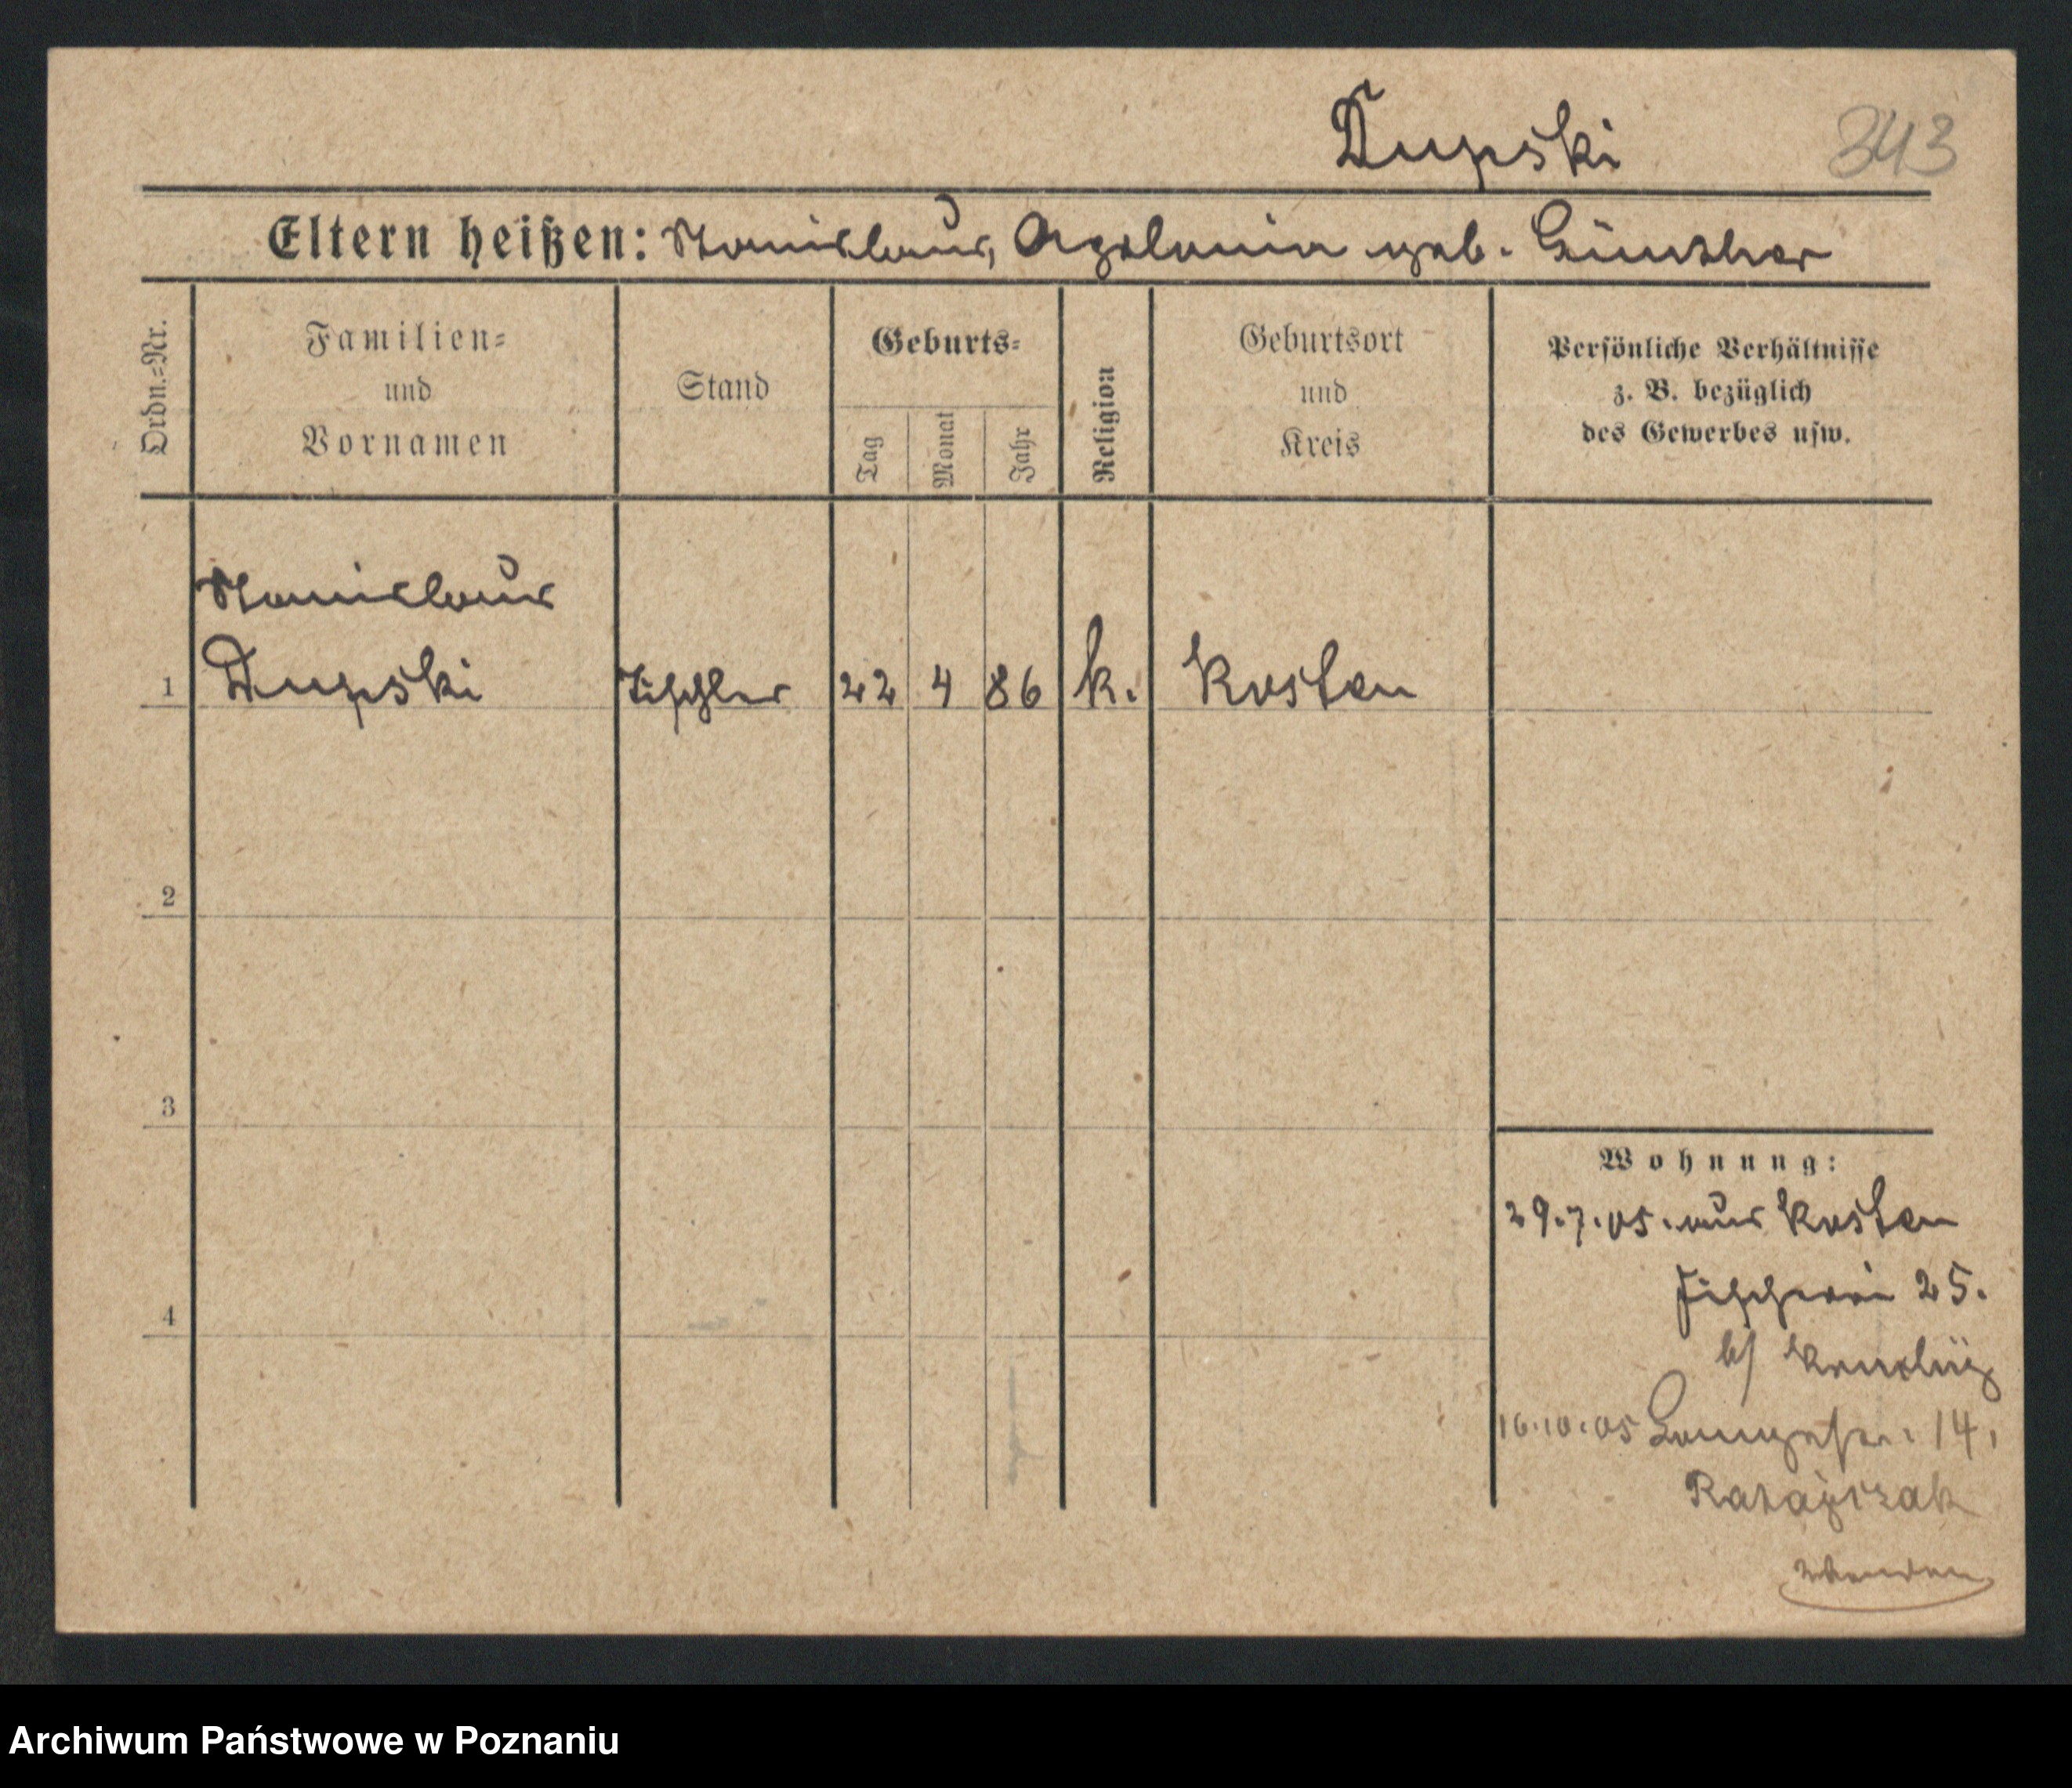 Dupski 343
Eltern heißen: Stanislaus, Apolonia geb. Günther
Ordn.=Nr.
Familien=
und
Vornamen
Stand
Geburts=
Tag
Monat
Jahr
Religion
Geburtsort
und
Kreis
Persönliche Verhältnisse
z. B. bezüglich
des Gewerbes usw.
Stanislaus
1 Dupski Tischler 22 4 86 k. Kosten
2
3
4
Wohnung:
29.7.05. aus Kosten
Fischerei 25.
b/
16.10.05 Langestr. 14.
Ratajczak
wenden
Archiwum Państwowe w Poznaniu